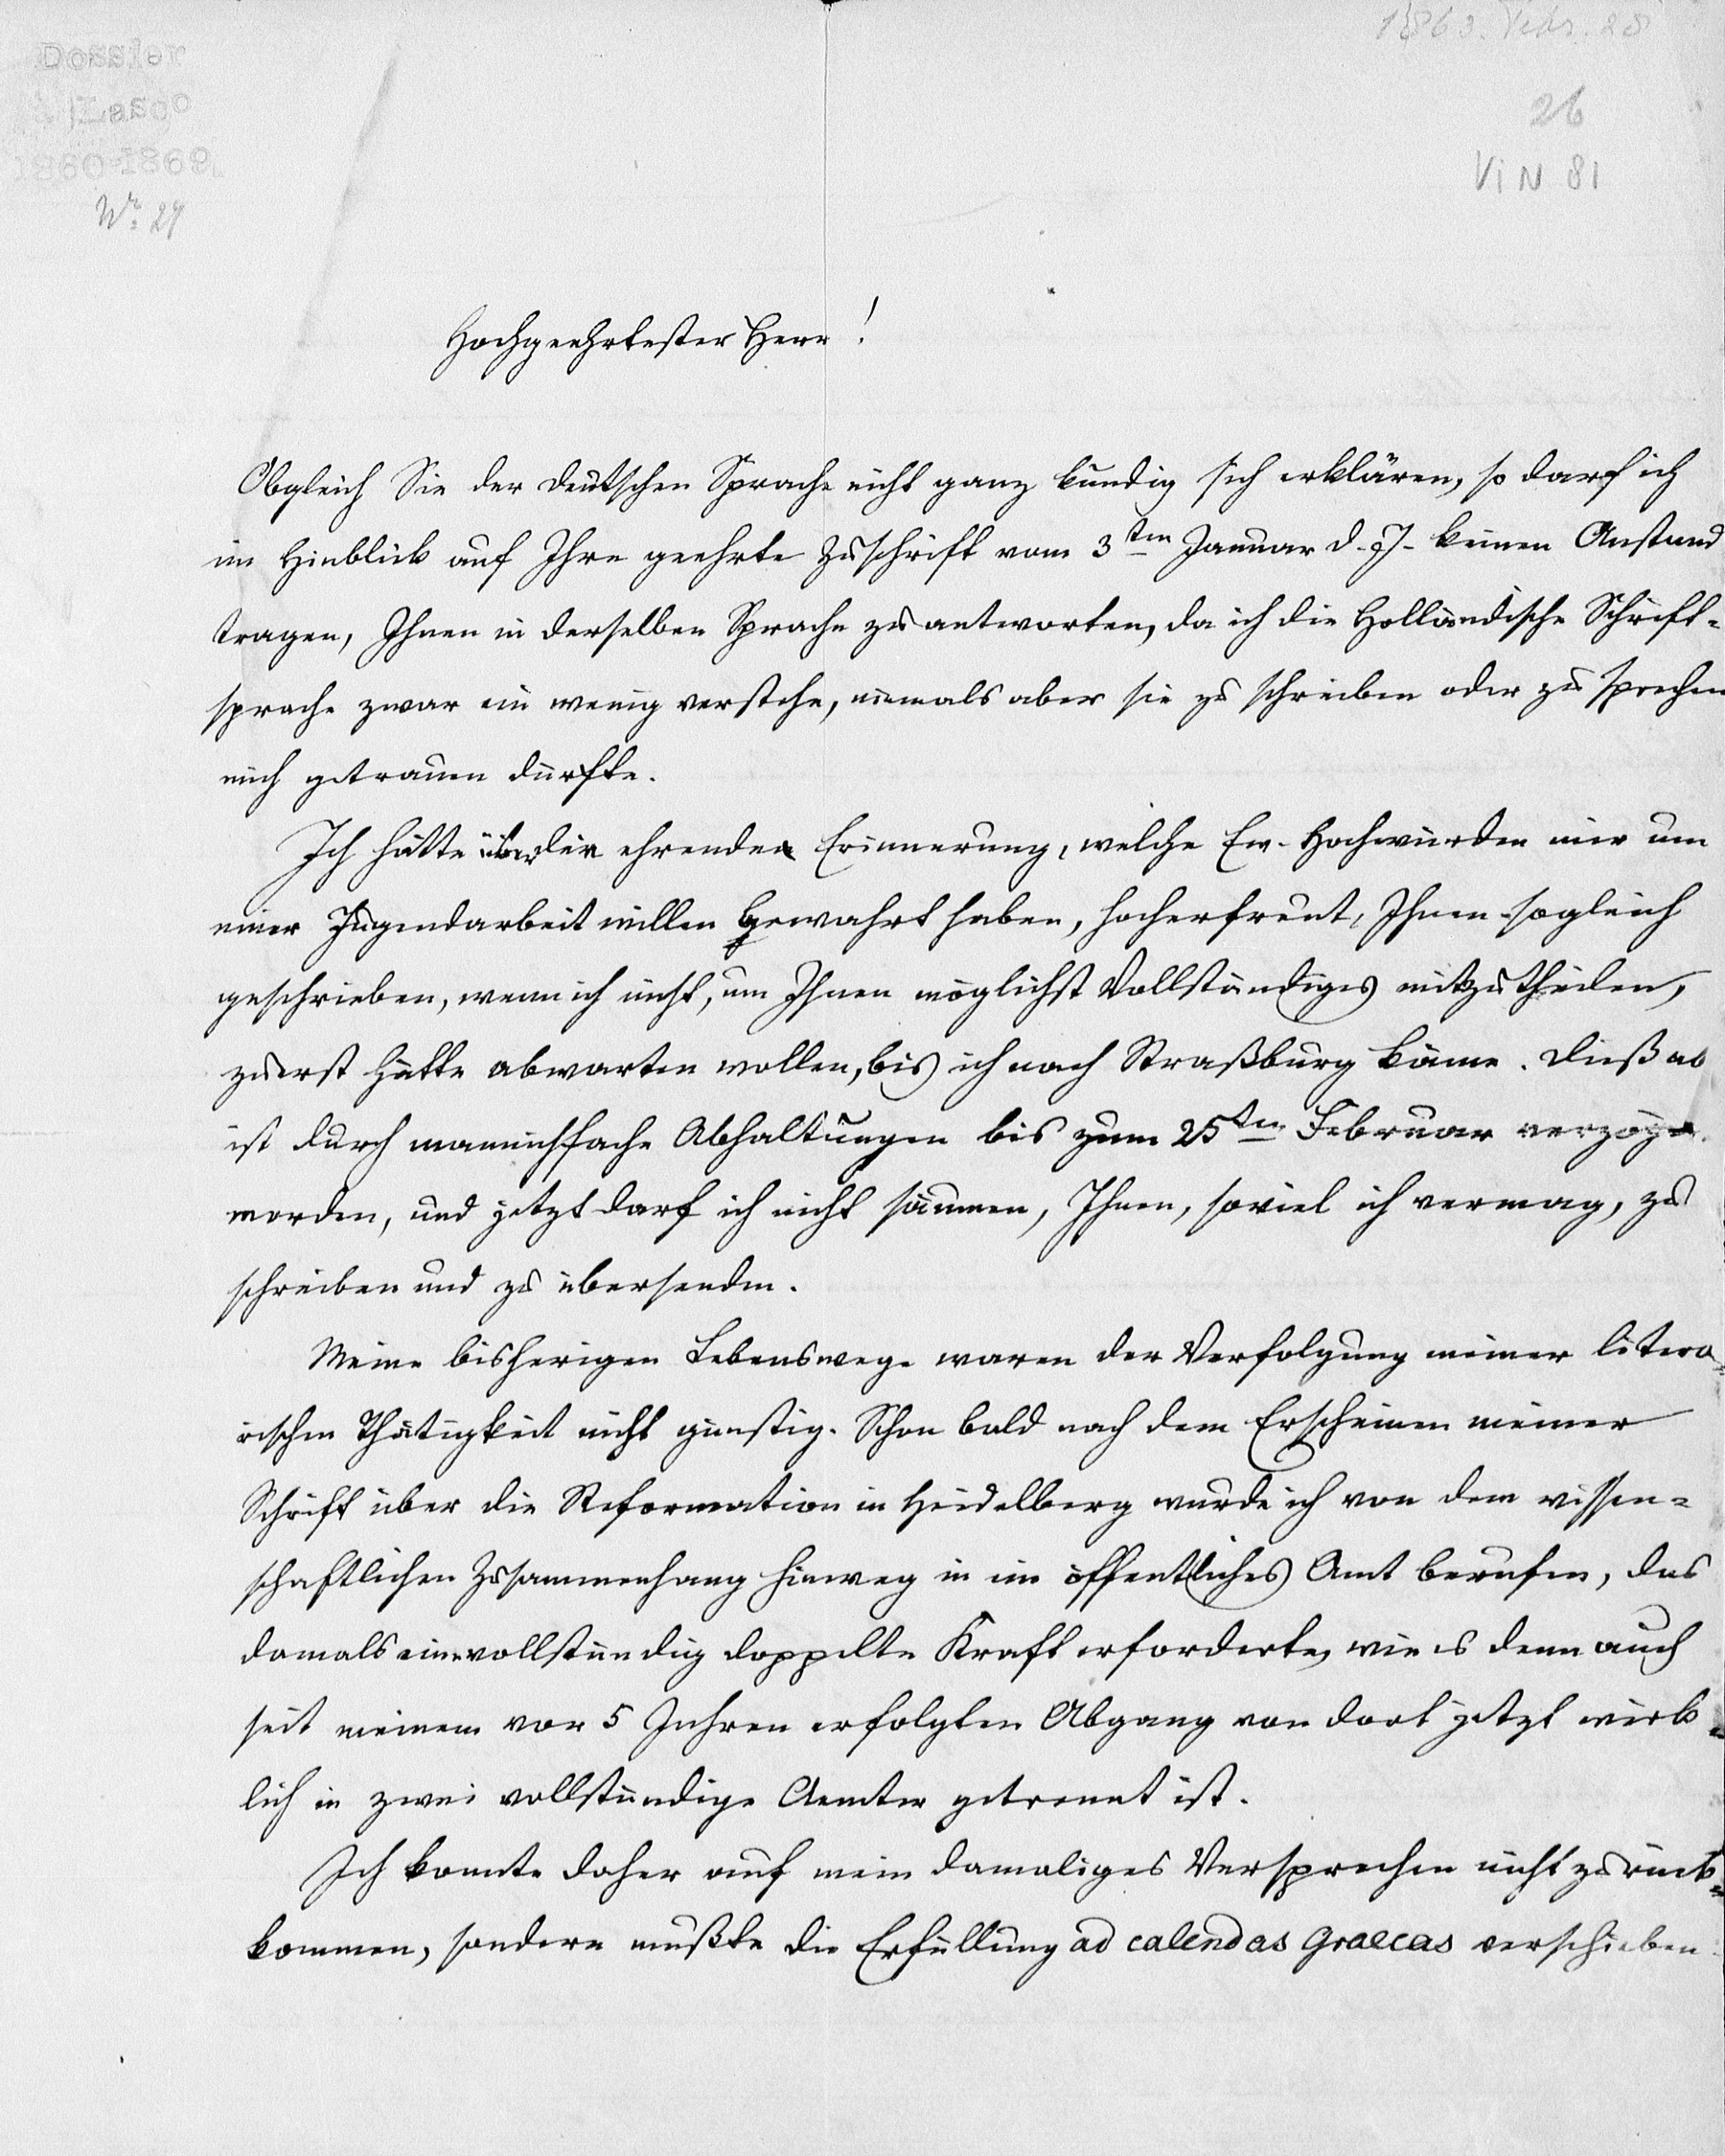 Dossier
à Lasco
1860-1869
Nr. 29
1863. Febr. 28
26
VI N 81
Hochgeehrtester Herr!
Obgleich Sie der deutschen Sprache nicht ganz kundig sich erklären, so darf ich
im Hinblick auf Ihre geehrte Zuschrift vom 3ten Januar d. J. keinen Anstand
tragen, Ihnen in derselben Sprache zu antworten, da ich die Holländische Schrift-
sprache zwar ein wenig verstehe, niemals aber sie zu schreiben oder zu sprechen
mich getrauen dürfte.
Ich hätte über die ehrende Erinnerung, welche Ew. Hochwürden mir um
einer Jugendarbeit willen bewahrt haben, hocherfreut, Ihnen sogleich
geschrieben, wenn ich nicht, um Ihnen möglichst Vollständiges mitzutheilen,
zuerst hätte abwarten wollen, bis ich nach Straßburg käme. Dieß ab
ist durch mannichfache Abhaltungen bis zum 25ten Februar verzöge
worden, und jetzt darf ich nicht säumen, Ihnen, soviel ich vermag, zu
schreiben und zu übersenden.
Meine bisherigen Lebenswege waren der Verfolgung meiner litera-
rischen Thätigkeit nicht günstig. Schon bald nach dem Erscheinen meiner
Schrift über die Reformation in Heidelberg wurde ich von dem wissen-
schaftlichen Zusammenhang hinweg in ein öffentliches Amt berufen, das
damals eine vollständig doppelte Kraft erforderte, wie es denn auch
seit meinem vor 5 Jahren erfolgten Abgang von dort jetzt wirk-
lich in zwei vollständige Aemter getrennt ist.
Ich konnte daher auf mein damaliges Versprechen nicht zurück-
kommen, sondern mußte die Erfüllung ad calendas Graecas verschieben.